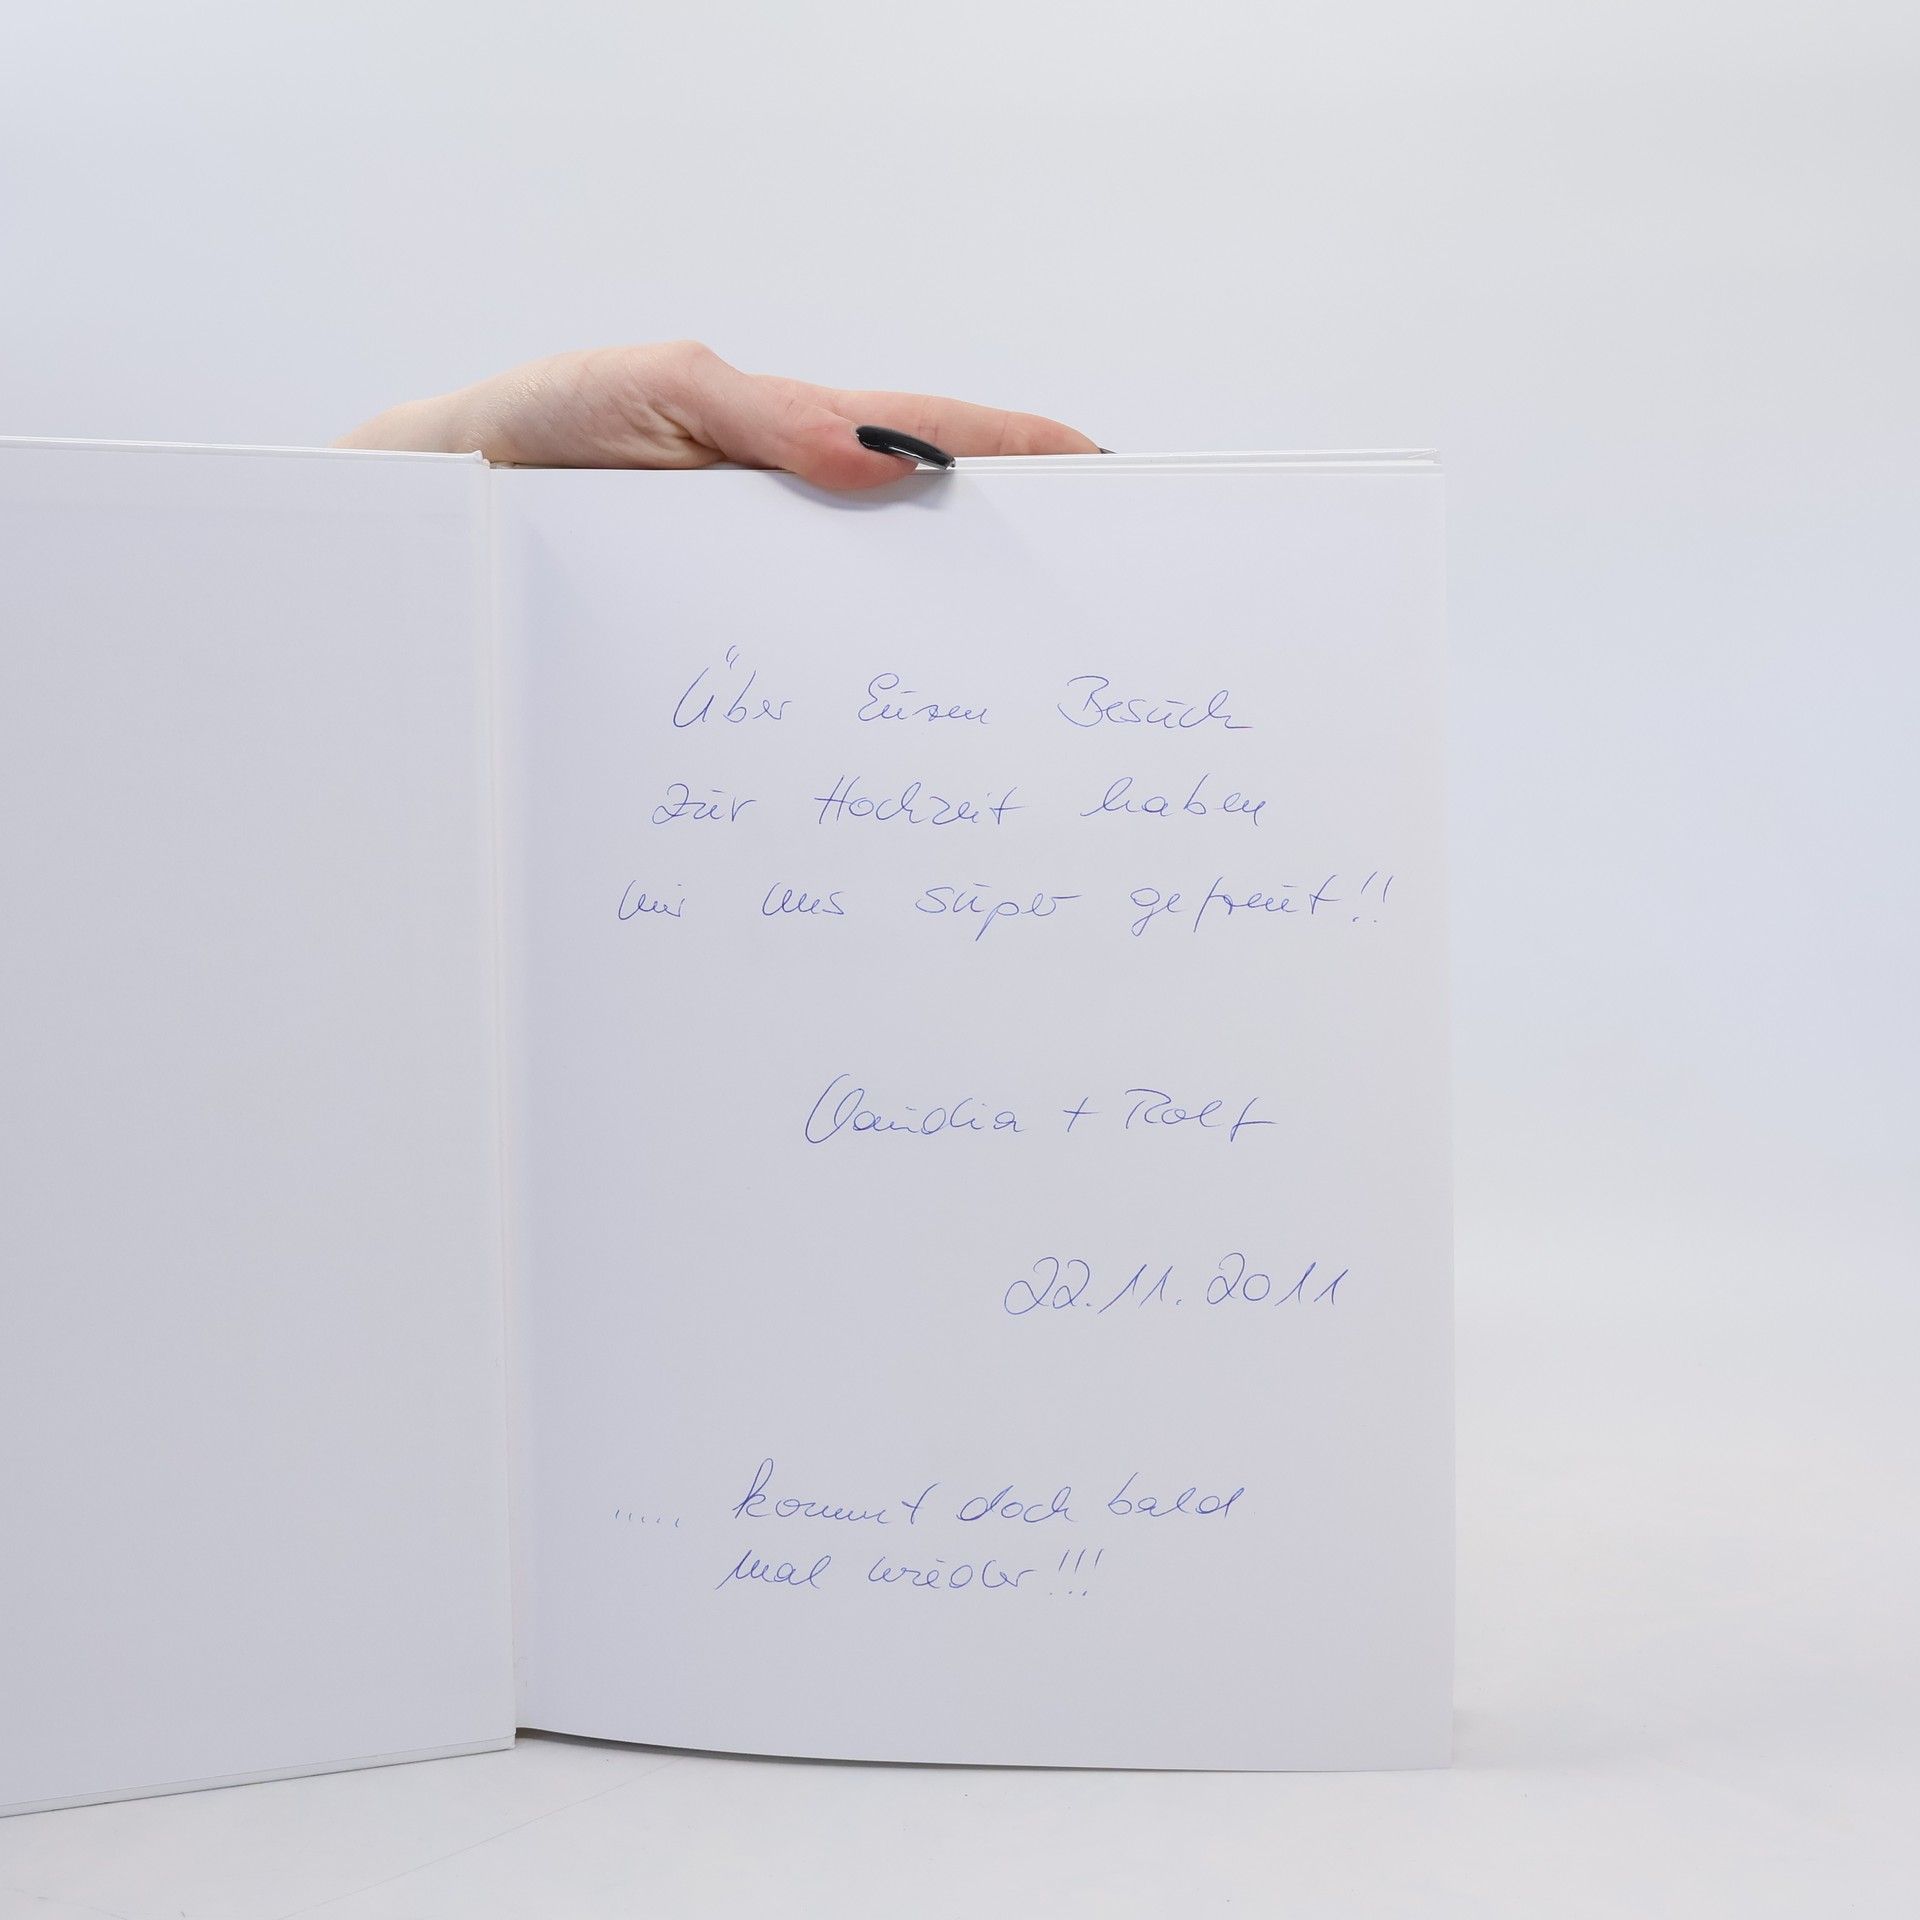 Über Euren Besuch
zur Hochzeit haben
wir uns super gefreut!!
Claudia + Rolf
22.11.2011
..... kommt doch bald
mal wieder!!!